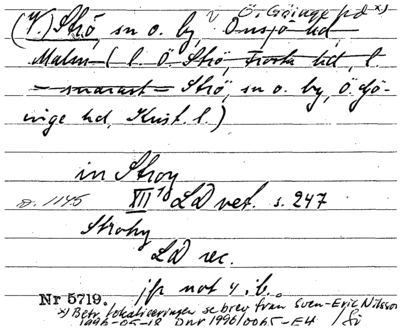 (V.) Strö, sn o. by, Onsjö hd, Ö. Göinge hd *)
Malm. (l. Ö. Strö, Frosta hd, l.
– snarast – Strö, sn o. by, Ö. Gö-
inge hd, Krist. l.)
in Stroy
a. 1145 XII LD vet. s. 247
Strohy
LD rec.
jfr not 4 ib.
Nr 5719.
*) Betr. lokaliseringen se brev från Sven-Eric Nilsson
1996-05-18 Dnr 1996/0065-E4